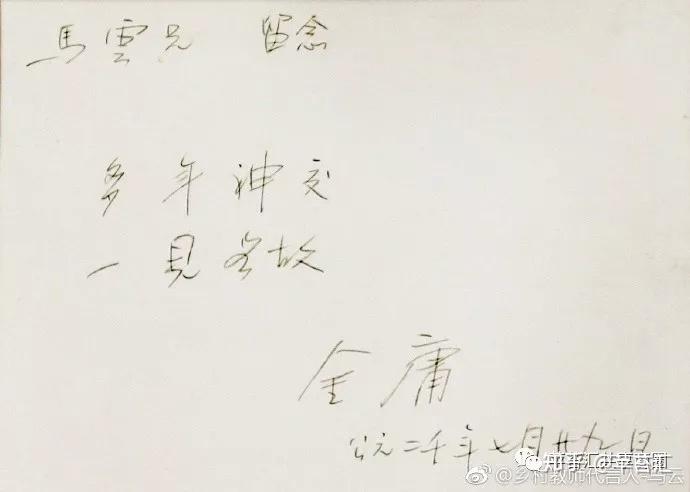 馬雲兄 留念
多年神交
一見若故
金庸
公元二千年七月廿九日
@乡村教师代言人-马云